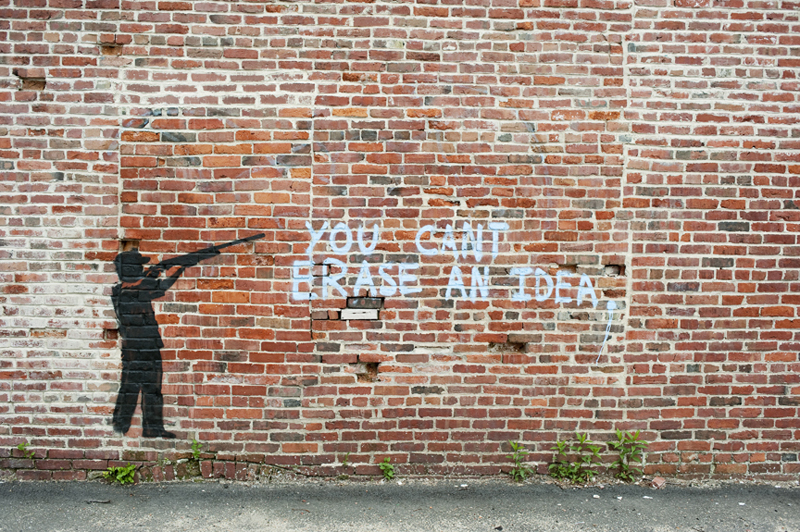 YOU CANT
ERASE AN IDEA.